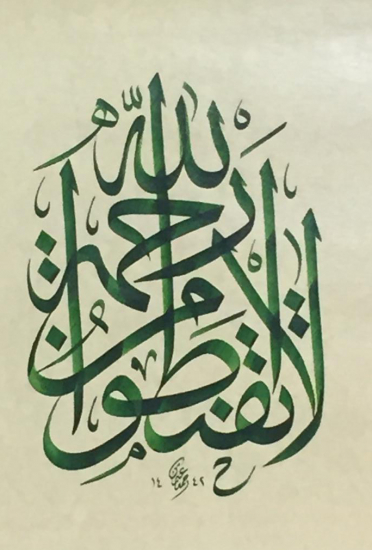 لا تقنطوا من رحمة الله
١٤ ٤٢